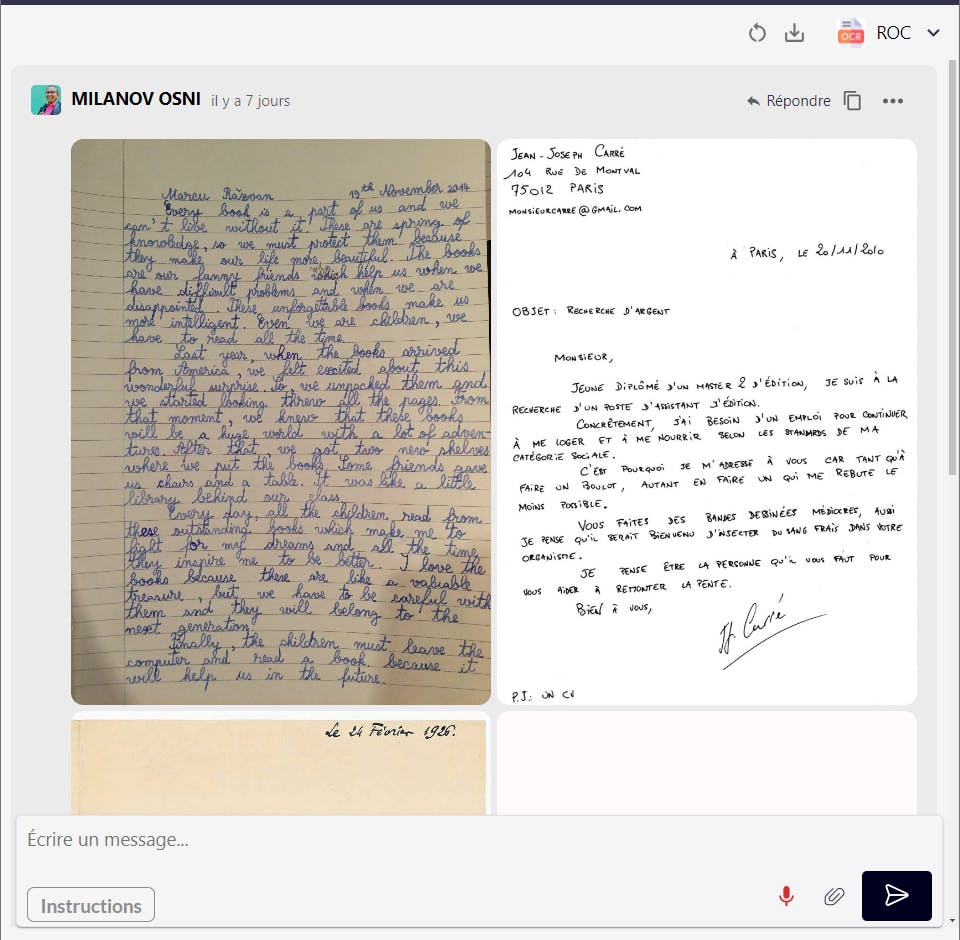 OCR
ROC
MILANOV OSNI il y a 7 jours
Répondre
Marcu Răzvan 19th November 2014
Every book is a part of us and we
can't live without it. These are spring of
knowledge, so we must protect them because
they make our life more beautiful. The books
are our funny friends which help us when we
have difficult problems and when we are
disappointed. These unforgettable books make us
more intelligent. Even we are children, we
have to read all the time.
Last year, when the books arrived
from America, we felt excited about this
wonderful surprise. So, we unpacked them and
we started looking threw all the pages. From
that moment, we knew that these books
will be a huge world with a lot of adven-
tures. After that, we got two new shelves
where we put the books. Some friends gave
us chairs and a table. It was like a little
library behind our class.
Every day, all the children read from
these outstanding books which make me to
fight for my dreams and all the time
they inspire me to be better. I love the
books because these are like a valuable
treasure, but we have to be careful with
them and they will belong to the
next generation.
Finally, the children must leave the
computer and read a book because it
will help us in the future.
JEAN-JOSEPH CARRÉ
104 RUE DE MONTVAL
75012 PARIS
MONSIEURCARRE@GMAIL.COM
À PARIS, LE 20/11/2010
OBJET: RECHERCHE D'ARGENT
MONSIEUR,
JEUNE DIPLÔMÉ D'UN MASTER 2 D'ÉDITION, JE SUIS À LA
RECHERCHE D'UN POSTE D'ASSISTANT D'ÉDITION.
CONCRÈTEMENT, J'AI BESOIN D'UN EMPLOI POUR CONTINUER
À ME LOGER ET À ME NOURRIR SELON LES STANDARDS DE MA
CATÉGORIE SOCIALE.
C'EST POURQUOI JE M'ADRESSE À VOUS CAR TANT QU'À
FAIRE UN BOULOT, AUTANT EN FAIRE UN QUI ME REBUTE LE
MOINS POSSIBLE.
VOUS FAITES DES BANDES DESSINÉES MÉDIOCRES, AUSSI
JE PENSE QU'IL SERAIT BIENVENU D'INSECTER DU SANG FRAIS DANS VOTRE
ORGANISME.
JE PENSE ÊTRE LA PERSONNE QU'IL VOUS FAUT POUR
VOUS AIDER À REMONTER LA PENTE.
BIEN À VOUS,
JJ. Carré
P.J: UN CV
Le 24 Février 1926.
Écrire un message...
Instructions